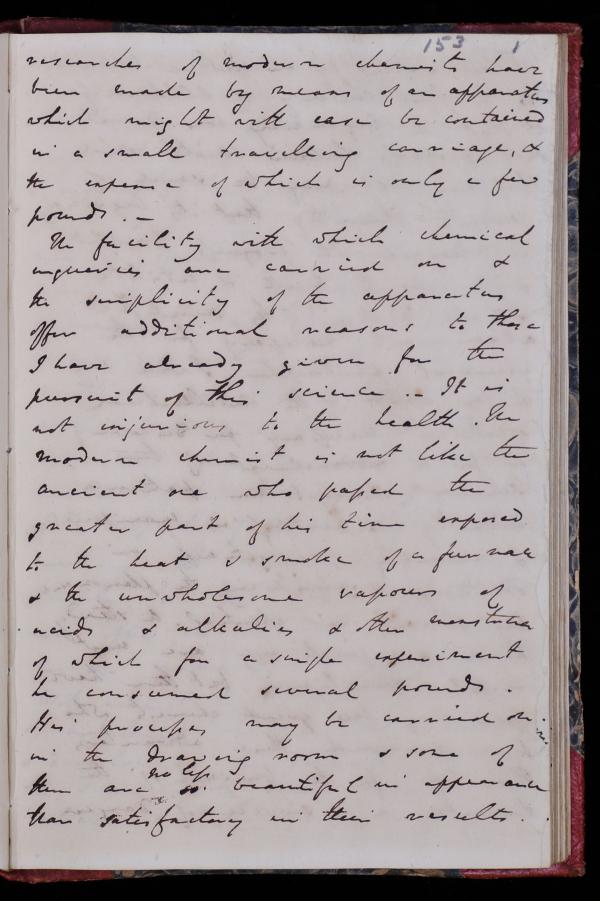 153 1
researches of modern chemists have
been made by means of an apparatus
which might with ease be contained
in a small travelling carriage, &
the expense of which is only a few
pounds. —
The facility with which chemical
inquiries are carried on &
the simplicity of the apparatus
offer additional reasons to those
I have already given for the
pursuit of this science. — It is
not injurious to the health. The
modern chemist is not like the
ancient one who passed the
greater part of his time exposed
to the heat & smoke of a furnace
& the unwholesome vapours of
acids & alkalies & other menstrua
of which for a single experiment
he consumed several pounds.
His processes may be carried on
in the drawing room & some of
them are no less beautiful in appearance
than satisfactory in their results.